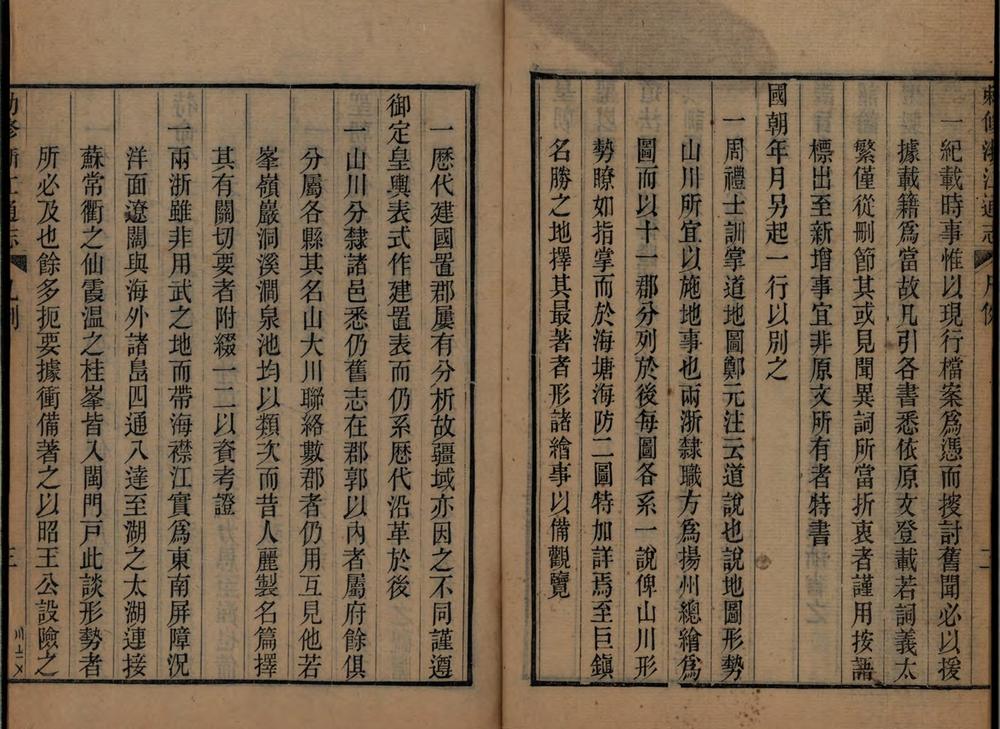 勅修浙江通志 凡例 二
一紀載時事惟以現行檔案爲憑而搜討舊聞必以援
據載籍爲當故凡引各書悉依原文登載若詞義太
繁僅從刪節其或見聞異詞所當折衷者謹用按語
標出至新增事宜非原文所有者特書
國朝年月另起一行以別之
一周禮土訓掌道地圖鄭元注云道說也說地圖形勢
山川所宜以施地事也兩浙隸職方爲揚州總繪爲
圖而以十一郡分列於後每圖各系一說俾山川形
勢瞭如指掌而於海塘海防二圖特加詳焉至巨鎭
名勝之地擇其最著者形諸繪事以備觀覽
一歴代建國置郡屢有分析故疆域亦因之不同謹遵
御定皇輿表式作建置表而仍系歴代沿革於後
一山川分隸諸邑悉仍舊志在郡郭以內者屬府餘俱
分屬各縣其名山大川聯絡數郡者仍用互見他若
峯嶺巖洞溪澗泉池均以類次而昔人麗製名篇擇
其有關切要者附綴一二以資考證
一兩浙雖非用武之地而帶海襟江實爲東南屏障況
洋面遼闊與海外諸島四通八達至湖之太湖連接
蘇常衢之仙霞温之桂峯皆入閩門戸此談形勢者
所必及也餘多扼要據衝備著之以昭王公設險之
勅修浙江通志 凡例 三